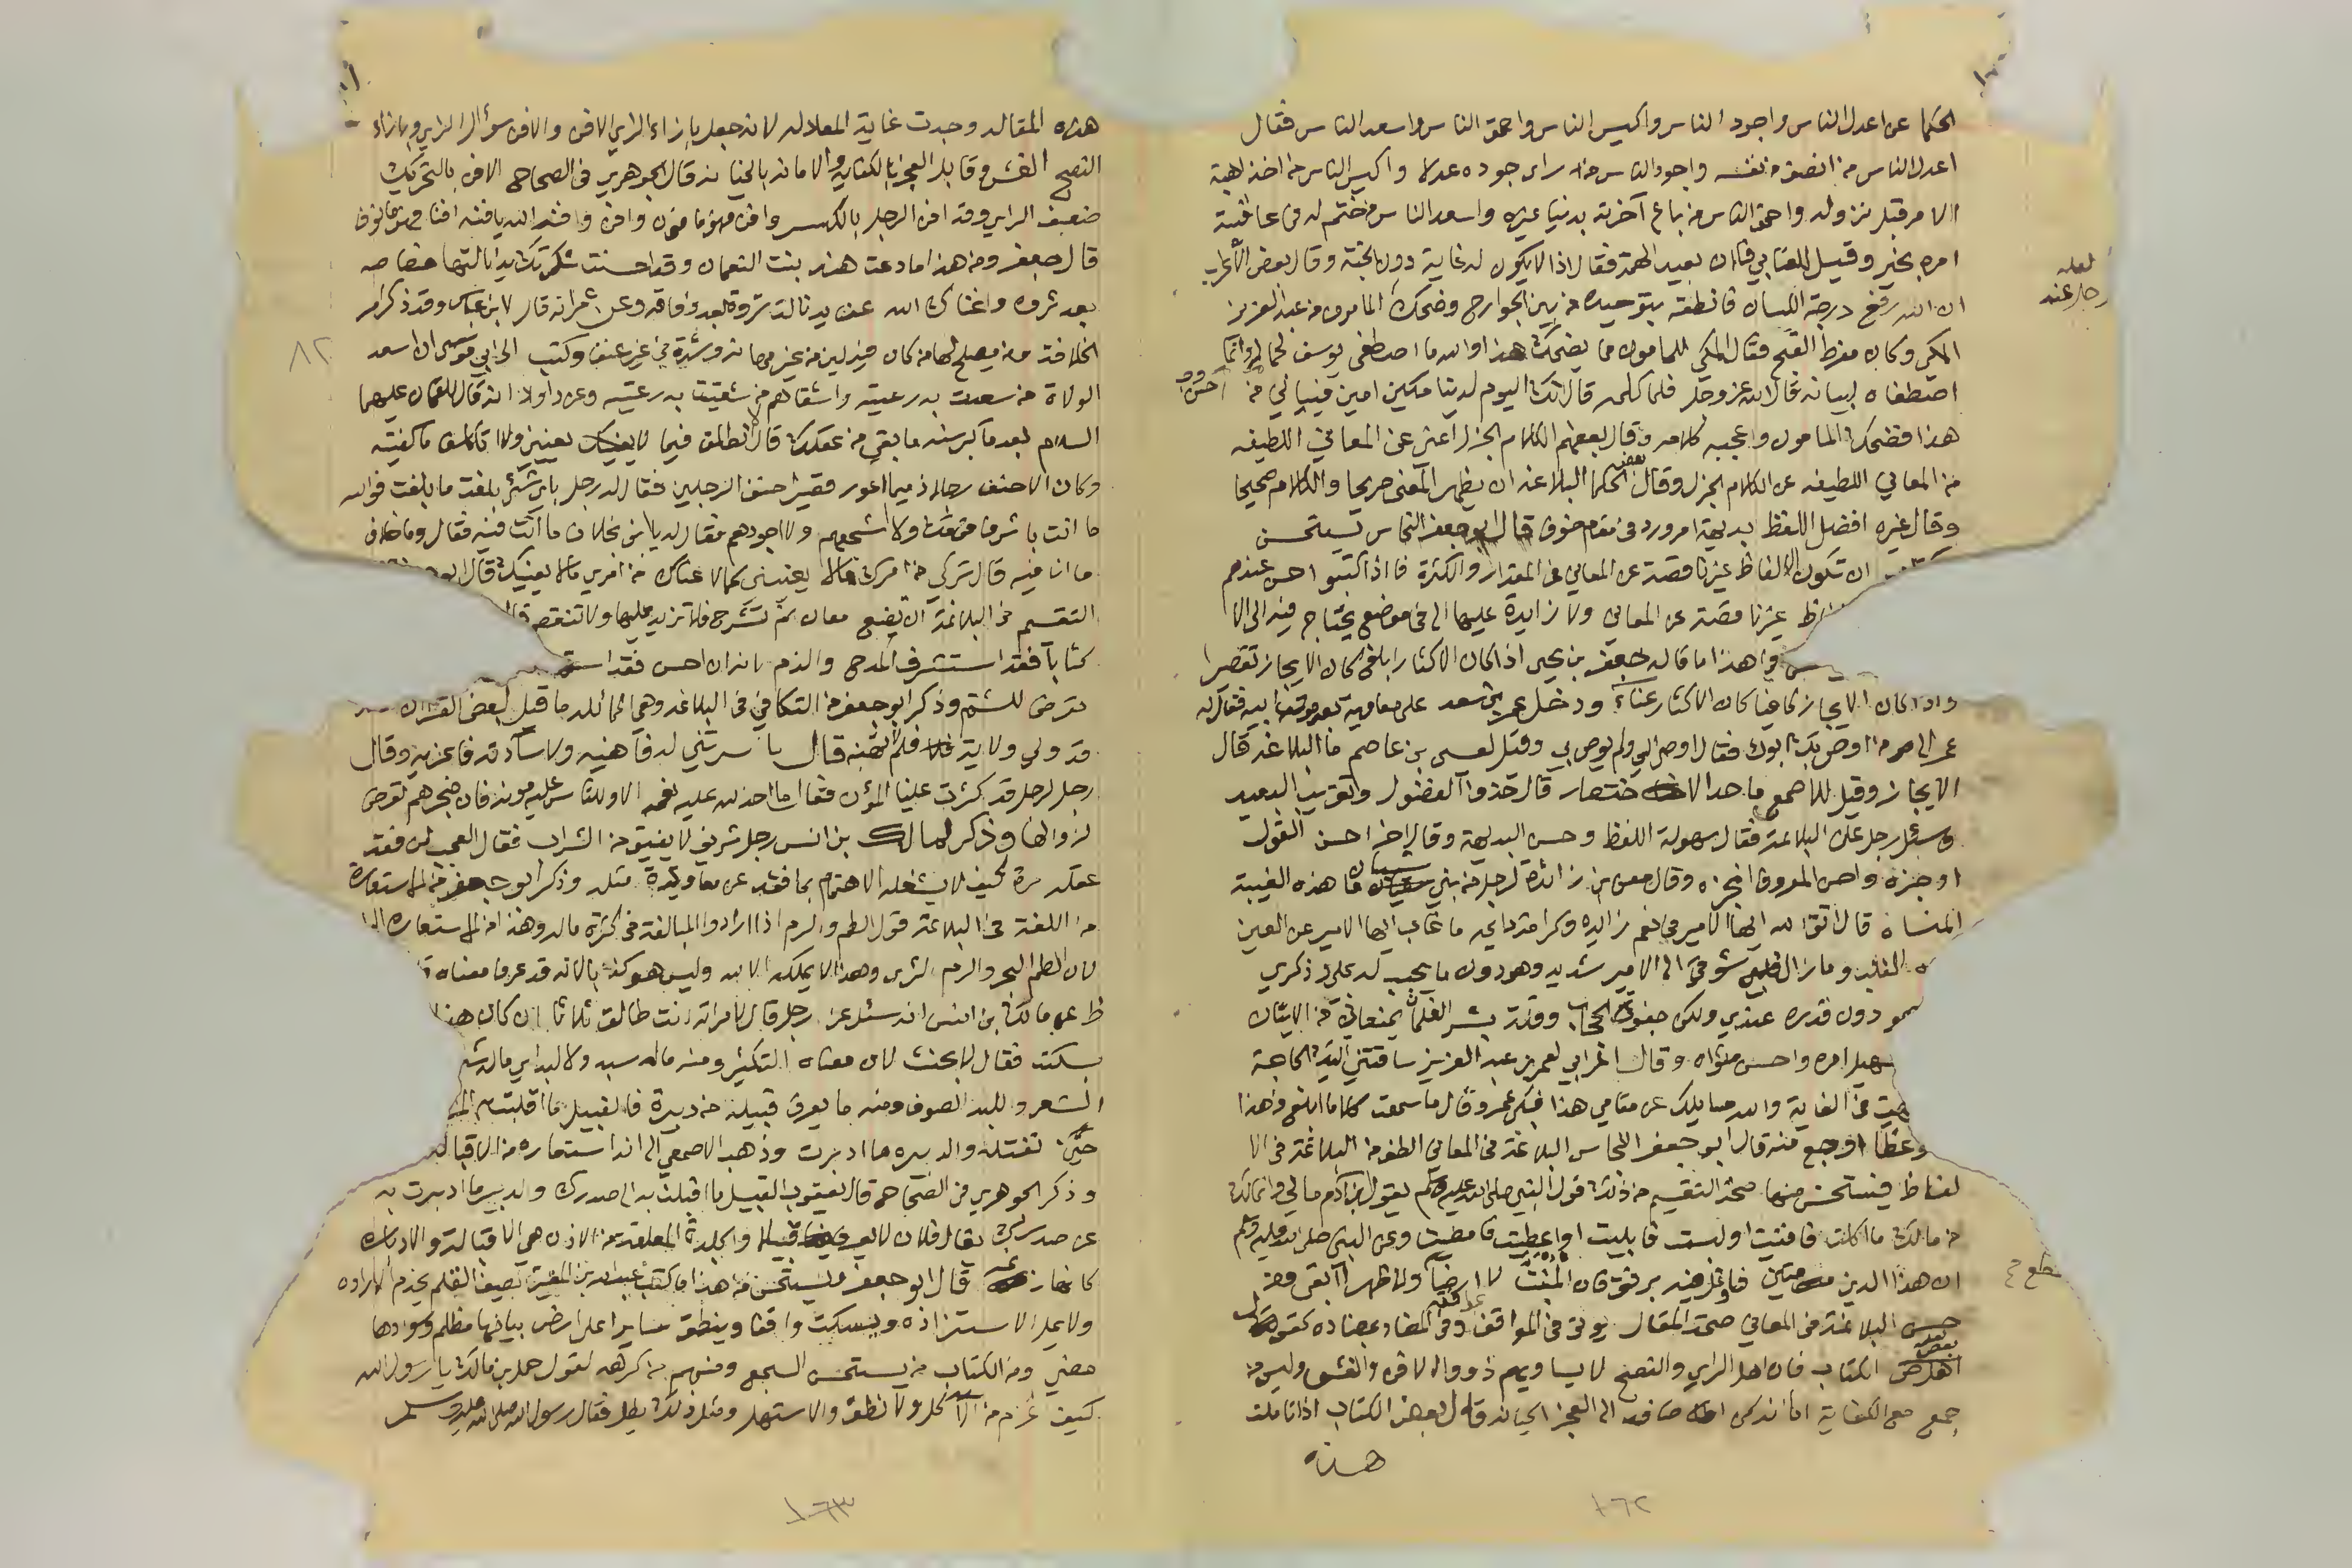 الحكما عن اعدل الناس واجود الناس واكيس الناس واحمق الناس واسعد الناس فقال
اعدل الناس من انصف من نفسه واجود الناس من راى جوده عدلا واكيس الناس من اخذ اهبة
الامر قبل نزوله واحمق الناس من باع آخرته بدنيا غيره واسعد الناس من ختم له في عاقبة
امره بخير وقيل للعتابي فلان بعيد الهمة فقال اذا لا يكون له غاية دون الجنة وقال بعض الاعراب
لعله
رجل عند
ان الله رفع درجة اللسان فانطقه بتوحيده من بين الجوارح وضحك المامون من عبد العزيز
المكي وكان مفرط القبح فقال المكي للمامون مما يضحك هذا والله ما اصطفى يوسف لجماله وانما
اصطفاه لبيانه قال الله عز وجل فلما كلمه قال انك اليوم لدينا مكين امين فبياني من احسن
هذا فضحك المامون واعجبه كلامه وقال بعضهم الكلام الجزل اغنى عن المعاني اللطيفه
من المعاني اللطيفه عن الكلام الجزل وقال بعض الحكما البلاغة ان يظهر المعنى صريحا والكلام صحيحا
وقال غيره افضل اللفظ بديهة امر ورد في مقام خوف قال ابو جعفر النحاس يستحسن
ان تكون الالفاظ غير ناقصة عن المعاني في المقدار والكثرة فاذا كتبوا احسن عندهم
غير ناقصة عن المعاني ولا زايدة عليها الى في موضع يحتاج فيه الى الا
هذا ما قاله جعفر بن يحيى اذا كان الاكثار ابلغ كان الايجاز تقصيرا
واذا كان الايجاز كافيا كان الاكثار عناء ودخل عمر بن سعد على معاوية بعد موت ابيه فقال له
الى من اوصى بك ابوك فقال اوصى الي ولم يوص بي وقيل لعيسى بن عاصم ما البلاغة قال
الايجاز وقيل للاصمعي ما حد الاختصار قال حذف الفضول وتقريب البعيد
وسئل رجل عن البلاغة فقال سهولة اللفظ وحسن البديهة وقال اخر احسن القول
اوجزه واحسن المعروف انجزه وقال معن بن زائدة لرجل من بني شيبان ما هذه الغيبة
المنساة قال ابقى الله ايها الامير في نعم زايده وكرامة دايمه ما غاب ايها الامير عن العين
القلب وما زال شوقي الى الامير شديد وهو دون ما يجب له علي وذكري
دون قدره عندي ولكن جفوة الحجاب وقلة بشر الغلمان يمنعاني من الاتيان
امره واحسن مثواه وقال اعرابي لعمر بن عبد العزيز ساقتني اليك الحاجة
في الغاية والله سايلك عن مقامي هذا فبكى عمر وقال ما سمعت كلاما ابلغ من هذا
وعظا اوجع منه قال ابو جعفر النحاس البلاغة في المعاني الطف من البلاغة في الا
لفاظ فيستحسن منها صحة التقسيم من ذلك قول النبي صلى الله عليه وسلم يقول ابن آدم مالي وانما لك
من مالك ما اكلت فافنيت او لبست فابليت او اعطيت فامضيت وعن النبي صلى الله عليه وسلم
ان هذا الدين متين فاوغل فيه برفق فان المنبت لا ارضا ولا ظهرا ابقى ومن
حسن البلاغة في المعاني صحة المقال يوتى في الموافق بموافقه وفي المضاد بمضاده كقول
بعض الكتاب فان اهل الراي والنصح لا يساويهم ذووا الافن والغش وليس من
جمع مع الكفاية الامانه كمن اضاف الى العجز الخيانه قال بعض الكتاب اذا تاملت
هذه
١٦٢
هذه المقاله وجدت غاية المعادله لانه جعل بازاء الراي الافن والافن سوء الراي وبازاء
النصح الغش وقابل العجز بالكفايه والامانه بالخيانه قال الجوهري في الصحاح الافن بالتحريك
ضعف الراي وقد افن الرجل بالكسر وافن فهو مافون وافين وافنه الله يافنه افنا فهو مافون
قال جعفر ومن هذا ما دعت هند بنت النعمان وقد احسنت شكرتك يد نالتها خصاصه
بعد ثروه واغناك الله عن يد نالت ثروة بعد فاقه وعن عمر انه قال لابن عباس وقد ذكر امر
الخلافة من يصلح لها من كان فيه لين من غير مهانة وشدة من غير عنف وكتب الى ابي موسى ان اسعد
٨٢
الولاة من سعدت به رعيته واشقاهم من شقيت به رعيته وعن داود انه قال للقمان عليهما
السلام بعد ما كبرت سنه ما بقي من عقلك قال لا انطق فيما لا يعنيني ولا اتكلف ما كفيته
وكان الاحنف رجلا ذميما اعور قصير احنف الرجلين فقال له رجل باي شئ بلغت ما بلغت فوالله
ما انت باشرف قومك ولا اشجعهم ولا اجودهم فقال له يا ابن اخي بخلاف ما انت فيه فقال وما خلاف
ما انا فيه قال تركي من امرك مالا يعنيني كما عناك من امري مالا يعنيك قال
التقسيم في البلاغة ان يضع معان ثم تشرح فلا تزيد عليها ولا تنقص
كتابا فقد استشرف المدح والذم لانه ان احسن فقد
تعرض للشتم وذكر ابو جعفر من التكافي في البلاغة وهي المماثله ما قيل لبعض القرا ان
قد ولي ولاية فلم لا تهنه قال ما سرتني له فاهنيه ولا ساءته فاعزيه وقال
رجل لرجل قد كثرت علينا المؤن فقال ما احد لله عليه نعمه الا وللناس عليه مونه فان ضجر هم تعرض
لزوالها وذكر لمالك بن انس رجل شريف لا يفيق من الشراب فقال العجب لمن فقد
عقله مرة كيف لا يشغله الاهتمام بما فقد عن معاودة مثله وذكر ابو جعفر من الاستعارة
من اللغة في البلاغة قول الطم والرم اذا ارادوا المبالغة في كثرة ماله وهذا من الاستعاره
لان الطم البحر والرم الثرى وهذا لا يملكه الا الله وليس هو كذبا لانه قد عرف معناه
عن مالك بن انس انه سئل عن رجل قال لامراته انت طالق ثلاثا ان كان هذا
يسكت فقال لا يحنث لان معناه التكثير ومنه ماله سبد ولا لبد اي ماله
الشعر واللبد الصوف ومنه ما يعرف قبيله من دبيره فالقبيل ما اقبلت به
حين تفتله والدبير ما ادبرت وذهب الاصمعي الى انه استعاره من الاقباله
وذكر الجوهري في الصحاح قال يعقوب القبيل ما اقبلت به الى صدرك والدبير ما ادبرت به
عن صدرك يقال فلان لا يعرف قبيلا والجلدة المعلقة من الاذن هي الاقبالة والادبارة
قال ابو جعفر ويستحسن من هذا ما كتب عبد الله بن المعتز يصف القلم يخدم الاراده
ولا يمل الاستزاده ويسكت واقفا وينطق سايرا على ارض بياضها مظلم وسوادها
مضي ومن الكتاب من يستحسن السجع ومنهم من كرهه لقول حمل بن مالك يا رسول الله
كيف اغرم من لا اكل ولا نطق ولا استهل ومثل ذلك يطل فقال رسول الله صلى الله عليه وسلم
١٦٣